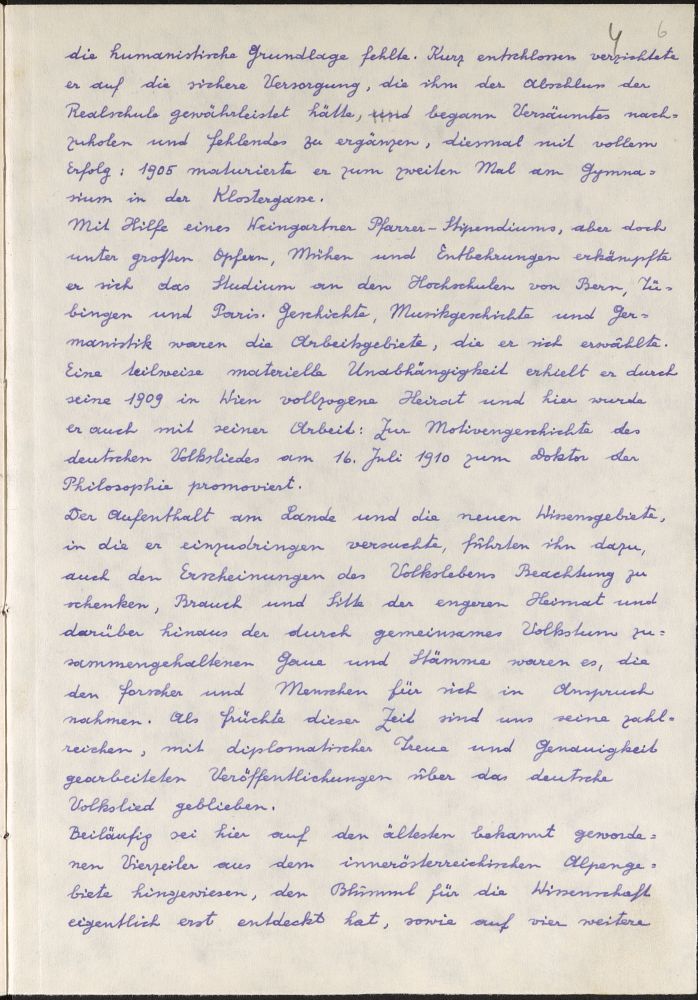 4 6
die humanistische Grundlage fehlte. Kurz entschlossen verzichtete
er auf die sichere Versorgung, die ihm der Abschluss der
Realschule gewährleistet hätte, und begann Versäumtes nach=
zuholen und fehlendes zu ergänzen, diesmal mit vollem
Erfolg: 1905 maturierte er zum zweiten Mal am Gymna=
sium in der Klostergasse.
Mit Hilfe eines Weingartner Pfarrer-Stipendiums, aber doch
unter großen Opfern, Mühen und Entbehrungen erkämpfte
er sich das Studium an den Hochschulen von Bern, Tü=
bingen und Paris. Geschichte, Musikgeschichte und Ger=
manistik waren die Arbeitsgebiete, die er sich erwählte.
Eine teilweise materielle Unabhängigkeit erhielt er durch
seine 1909 in Wien vollzogene Heirat und hier wurde
er auch mit seiner Arbeit: Zur Motivengeschichte des
deutschen Volksliedes am 16. Juli 1910 zum Doktor der
Philosophie promoviert.
Der Aufenthalt am Lande und die neuen Wissensgebiete,
in die er einzudringen versuchte, führten ihn dazu,
auch den Erscheinungen des Volkslebens Beachtung zu
schenken, Brauch und Sitte der engeren Heimat und
darüber hinaus der durch gemeinsames Volkstum zu=
sammengehaltenen Gaue und Stämme waren es, die
den Forscher und Menschen für sich in Anspruch
nahmen. Als Früchte dieser Zeit sind uns seine zahl=
reichen, mit diplomatischer Treue und Genauigkeit
gearbeiteten Veröffentlichungen über das deutsche
Volkslied geblieben.
Beiläufig sei hier auf den ältesten bekannt geworde=
nen Vierzeiler aus dem innerösterreichischen Alpenge=
biete hingewiesen, den Blümml für die Wissenschaft
eigentlich erst entdeckt hat, sowie auf vier weitere